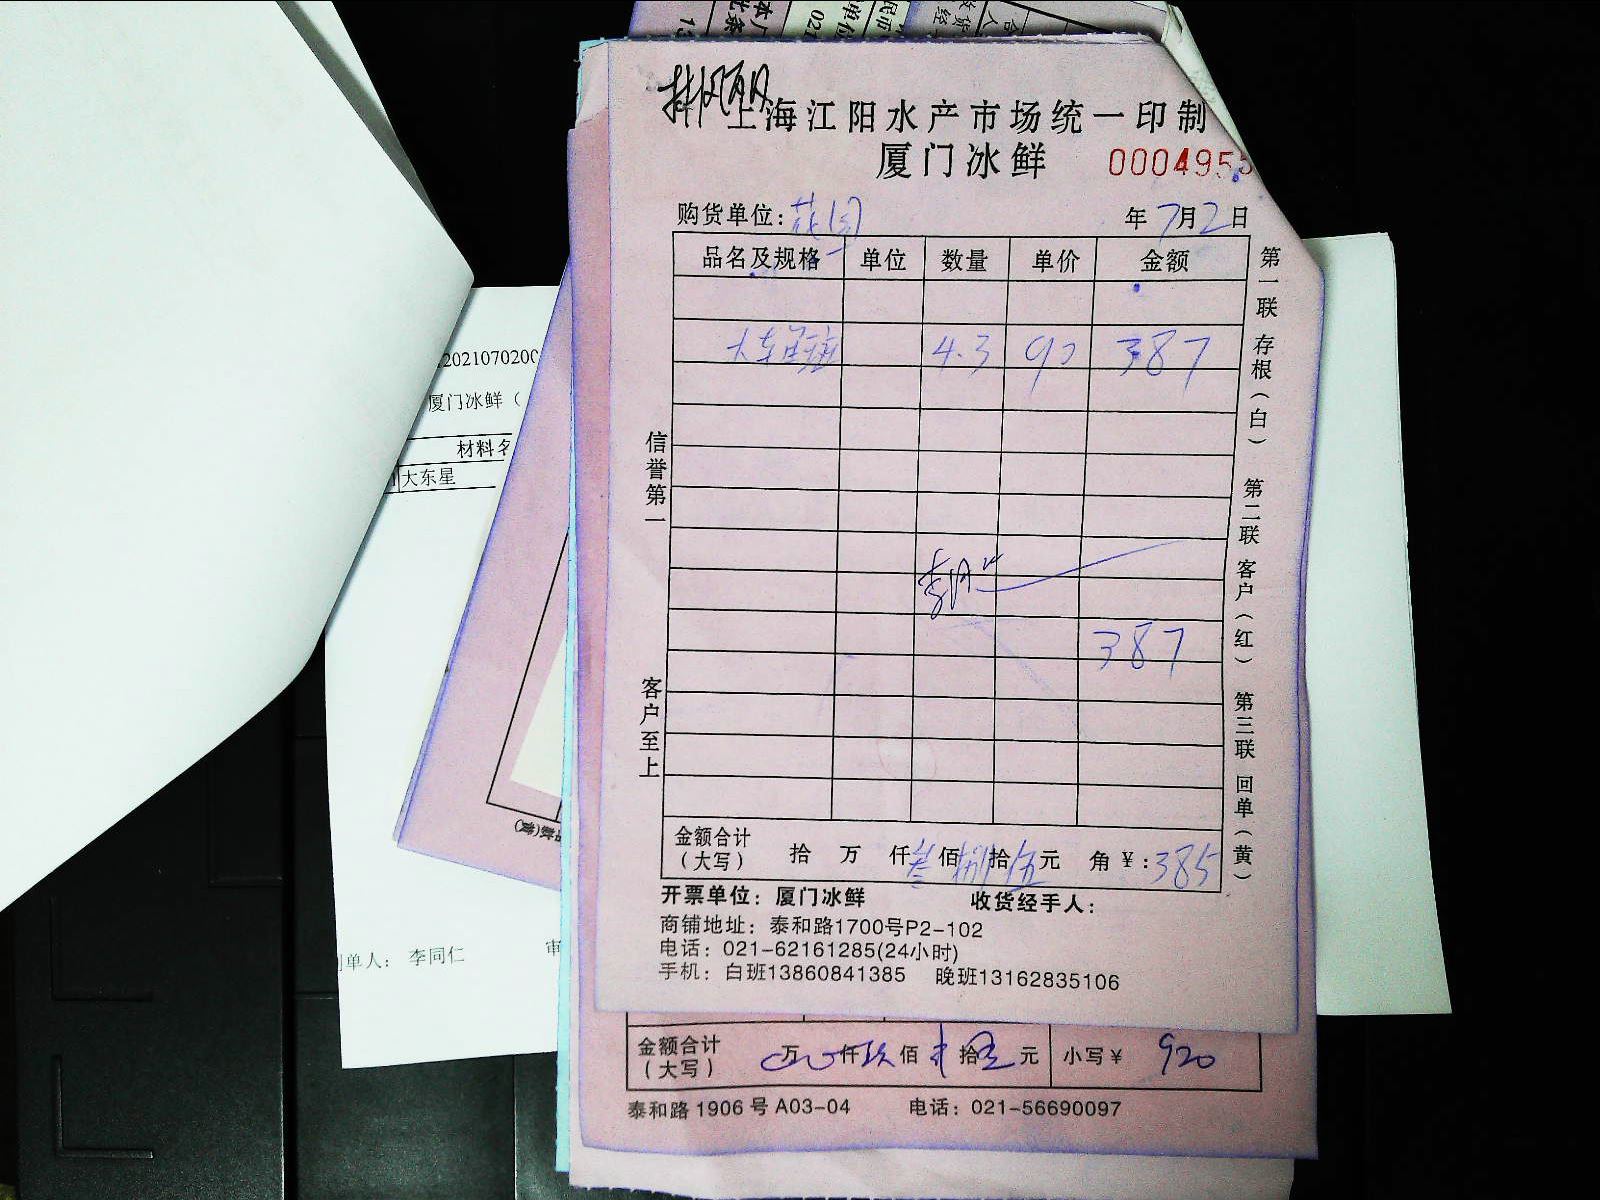 上海江阳水产市场统一印制
厦门冰鲜
000495
购货单位：花园 年7月2日
品名及规格 单位 数量 单价 金额
大东星斑 4.3 90 387
387
信誉第一
客户至上
第一联 存根（白） 第二联 客户（红） 第三联 回单（黄）
金额合计（大写） 拾 万 仟叁佰捌拾伍元 角 ¥：385
开票单位：厦门冰鲜 收货经手人：
商铺地址：泰和路1700号P2-102
电话：021-62161285(24小时)
手机：白班13860841385 晚班13162835106
金额合计（大写） 万 仟玖佰 拾 元 小写¥ 920
泰和路1906号A03-04 电话：021-56690097
202107020
厦门冰鲜（
材料名
大东星
制单人： 李同仁 审